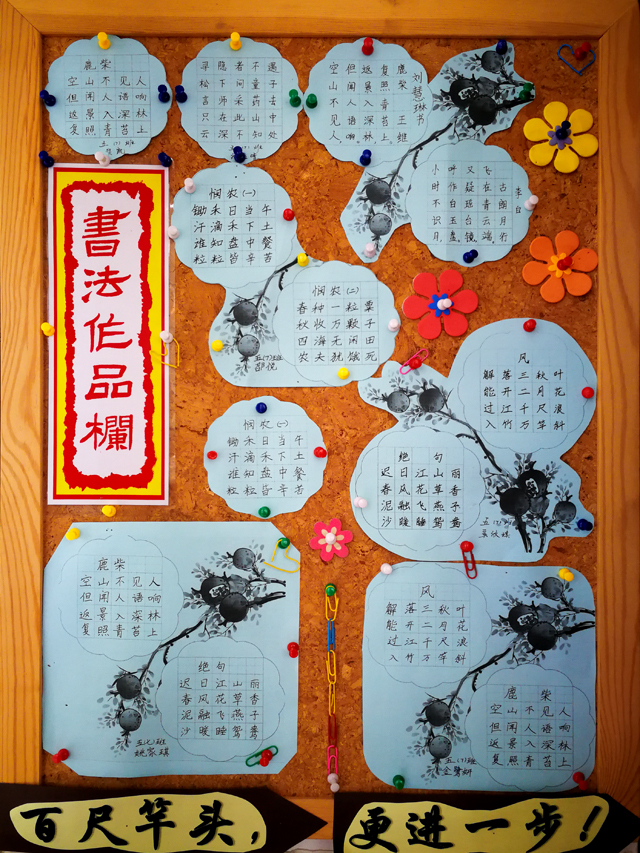 鹿柴
空山不见人
但闻人语响
返景入深林
复照青苔上
寻隐者不遇
松下问童子
言师采药去
只在此山中
云深不知处
空山不见人,
但闻人语响。
返景入深林,
复照青苔上。
鹿柴 王维
小时不识月,
飞在青云端,
古朗月行
李白
書法作品欄
悯农(一)
锄禾日当午
汗滴禾下土
谁知盘中餐
粒粒皆辛苦
悯农(二)
春种一粒粟
秋收万颗子
四海无闲田
农夫犹饿死
五(7)班
风
解落三秋叶
能开二月花
过江千尺浪
入竹万竿斜
绝句
迟日江山丽
春风花草香
泥融飞燕子
沙暖睡鸳鸯
悯农(一)
锄禾日当午
汗滴禾下土
谁知盘中餐
粒粒皆辛苦
鹿柴
空山不见人
但闻人语响
返景入深林
复照青苔上
绝句
迟日江山丽
春风花草香
泥融飞燕子
沙暖睡鸳鸯
五(7)班
风
解落三秋叶
能开二月花
过江千尺浪
入竹万竿斜
鹿柴
空山不见人
但闻人语响
返景入深林
复照青苔上
五(7)班
百尺竿头,
更进一步!